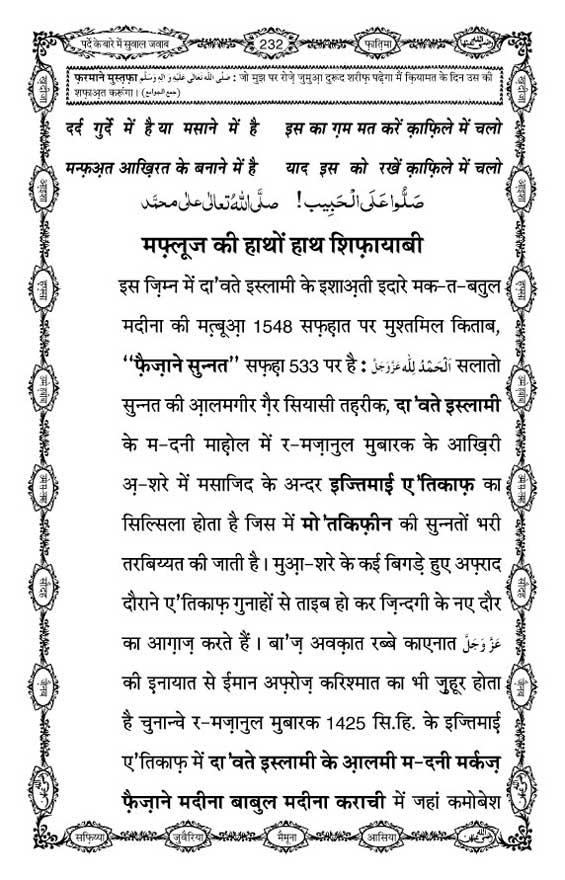 पर्दे के बारे में सुवाल जवाब 232 फ़ातिमा
फ़रमाने मुस्तफ़ा صَلَّى اللهُ تَعَالٰى عَلَيْهِ وَ اٰلِهٖ وَسَلَّم : जो मुझ पर रोज़े जुमुआ़ दुरूद शरीफ़ पढ़ेगा मैं क़ियामत के दिन उस की
शफ़ाअ़त करूंगा। (جمع الجوامع)
दर्द गुर्दे में है या मसाने में है इस का ग़म मत करें क़ाफ़िले में चलो
मन्फ़अ़त आख़िरत के बनाने में है याद इस को रखें क़ाफ़िले में चलो
صَلُّوْا عَلَى الْحَبِيْب! صلَّى اللهُ تعالٰى علٰى محمَّد
मफ़्लूज की हाथों हाथ शिफ़ायाबी
इस ज़िम्न में दा'वते इस्लामी के इशाअ़ती इदारे मक-त-बतुल
मदीना की मत़्बूआ़ 1548 सफ़्ह़ात पर मुश्तमिल किताब,
“फ़ैज़ाने सुन्नत” सफ़्ह़ा 533 पर है : اَلْحَمْدُ لِلّٰه عَزَّوَجَلَّ सलातो
सुन्नत की आ़लमगीर ग़ैर सियासी तह़रीक, दा'वते इस्लामी
के म-दनी माह़ोल में र-मज़ानुल मुबारक के आख़िरी
अ़-शरे में मसाजिद के अन्दर इज्तिमाई ए'तिकाफ़ का
सिल्सिला होता है जिस में मो'तकिफ़ीन की सुन्नतों भरी
तरबिय्यत की जाती है। मुआ़-शरे के कई बिगड़े हुए अफ़्राद
दौराने ए'तिकाफ़ गुनाहों से ताइब हो कर ज़िन्दगी के नए दौर
का आग़ाज़ करते हैं। बा'ज़ अवक़ात रब्बे काएनात عَزَّ وَجَلَّ
की इनायात से ईमान अफ़्रोज़ करिश्मात का भी ज़ुहूर होता
है चुनान्चे र-मज़ानुल मुबारक 1425 सि.हि. के इज्तिमाई
ए'तिकाफ़ में दा'वते इस्लामी के आ़लमी म-दनी मर्कज़
फ़ैज़ाने मदीना बाबुल मदीना कराची में जहां कमोबेश
सफ़िय्या जुवैरिया मैमूना आसिया